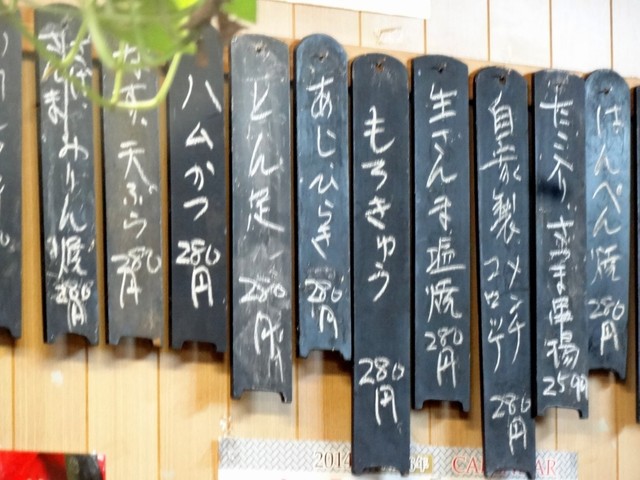 はんぺん焼 280円
たこ入りさつま串揚 250円
自家製 メンチ コロッケ 280円
生さんま塩焼 280円
もろきゅう 280円
あじひらき 280円
とん足 280円
ハムかつ 280円
なす天ぷら 280円
さんま みりん焼 280円
2014
年
CALENDAR